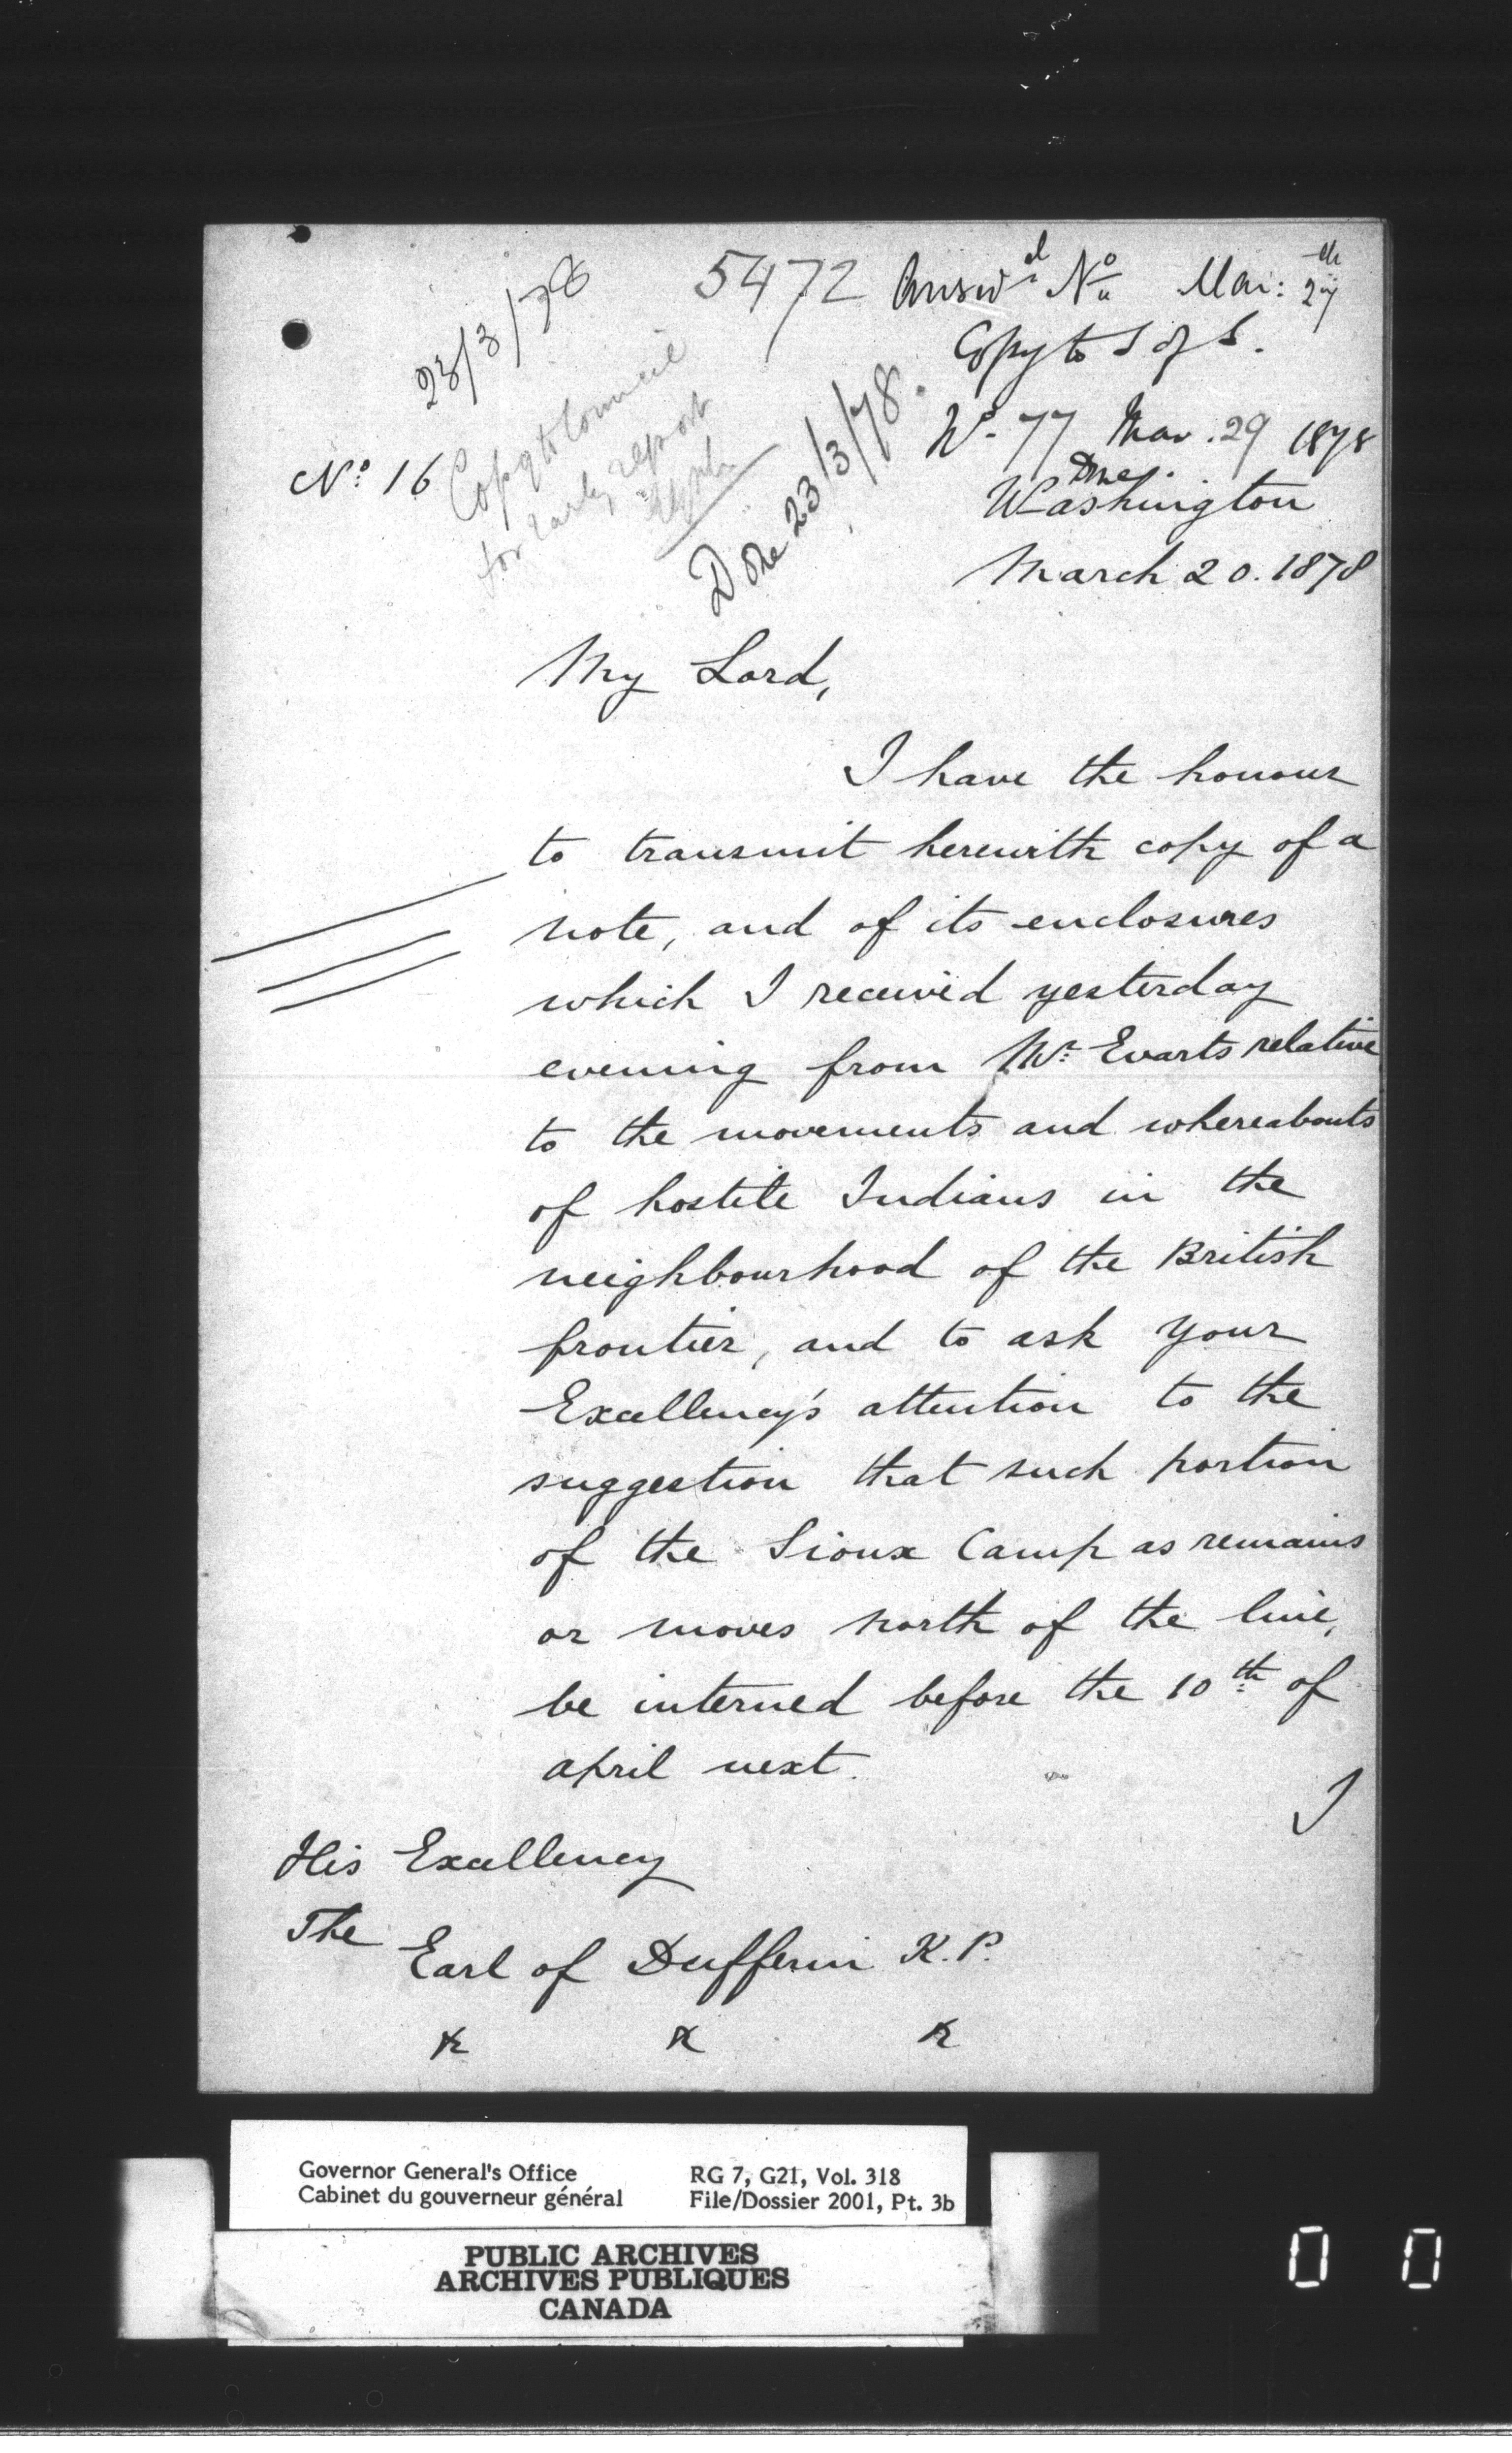 23/3/78
5472
Answd No. Mar: 27th
Copy to S of S.
No. 77 Mar. 29 1878
No. 16
Copy to Council
for early report
Done 23/3/78.
Washington
March 20. 1878
My Lord,
I have the honour
to transmit herewith copy of a
note, and of its enclosures
which I received yesterday
evening from Mr. Evarts relative
to the movements and whereabouts
of hostile Indians in the
neighbourhood of the British
frontier, and to ask Your
Excellency's attention to the
suggestion that such portion
of the Sioux Camp as remains
or moves north of the line,
be interned before the 10th of
April next.
I
His Excellency
The Earl of Dufferin K.P.
&c &c &c
Governor General's Office
Cabinet du gouverneur général
RG 7, G21, Vol. 318
File/Dossier 2001, Pt. 3b
PUBLIC ARCHIVES
ARCHIVES PUBLIQUES
CANADA
0 0